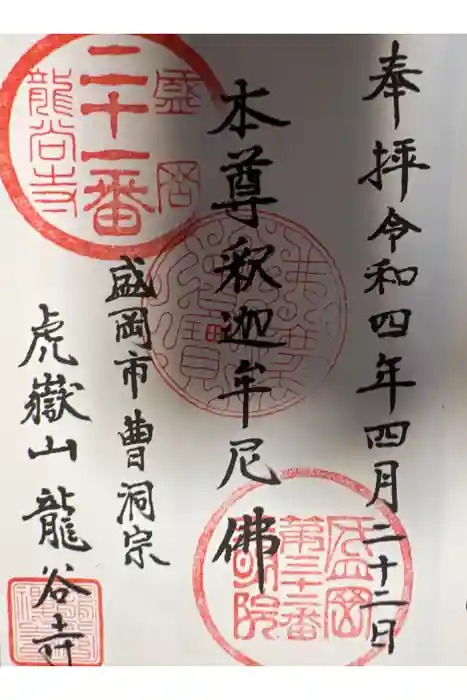 奉拝令和四年四月二十二日
本尊釈迦牟尼佛
盛岡市曹洞宗
虎嶽山龍谷寺
盛岡
二十一番
龍尚寺
盛岡
第三十三番